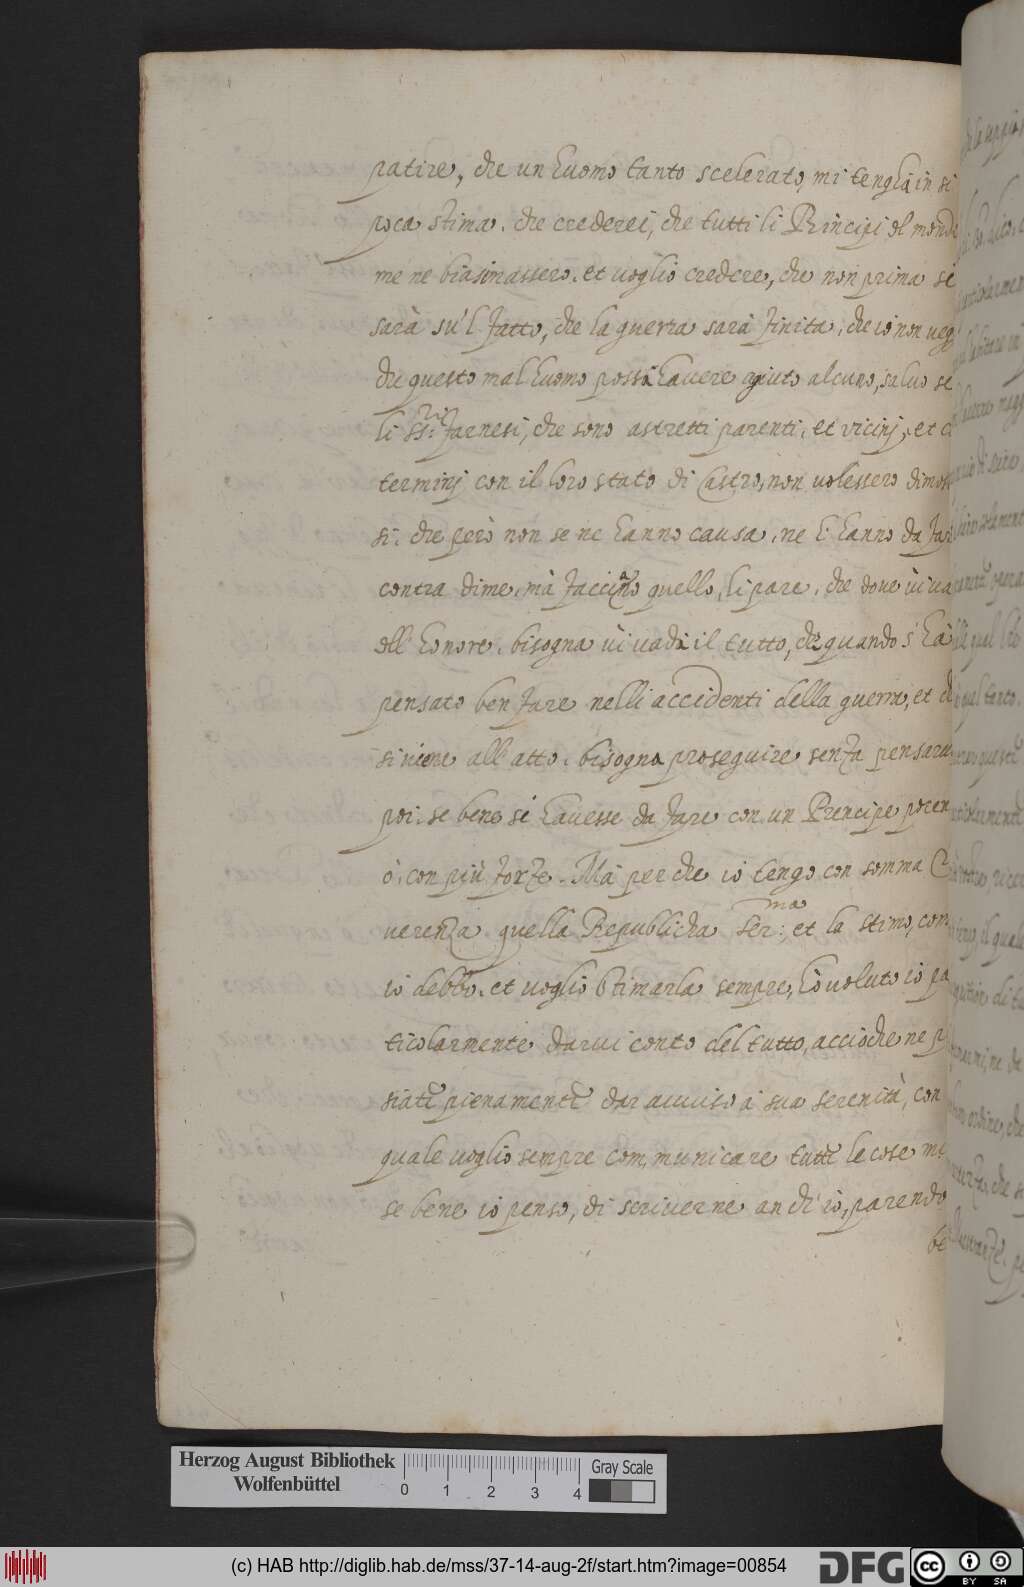 patire, che un huomo tanto scelerato, mi tenghi in si
poca stima. che crederei, che tutti li Principi del mondo
me ne biasimassero. et uoglio credere, che non prima se
sarà su'l fatto, che la guerra sarà finita. che io non
che questo mal huomo possi hauere agiuto alcuno, saluo se
li SS:ri Farnesi, che sono astretti parenti. et vicinj, et
terminj con il loro stato di Castro, non uolessero
si. che però non se ne hanno causa. ne l'hanno da
contra di me, mà faccino quello, li pare. che doue ui ua
dell' honore. bisogna ui uadi il tutto, che quando s'hà
pensato ben fare nelli accidenti della guerra, et
si uiene all' atto. bisogna proseguire senza
poi. se bene si hauesse da fare con un Prencipe
ò, con più forze. Mà perche io tengo con somma
uerenza quella Republicha Ser:ma et la stimo,
io debbo. et uoglio stimarla sempre, hò uoluto io pa
ticolarmente darui conto del tutto, accioche ne p
siate pienamente dar auuiso à sua serenità, con
quale uoglio sempre communicare tutte le cose
se bene io penso, di scriuerne anch' io, parendo
be
Herzog August Bibliothek
Wolfenbüttel
0 1 2 3 4
Gray Scale
(c) HAB http://diglib.hab.de/mss/37-14-aug-2f/start.htm?image=00854
DFG
cc BY SA